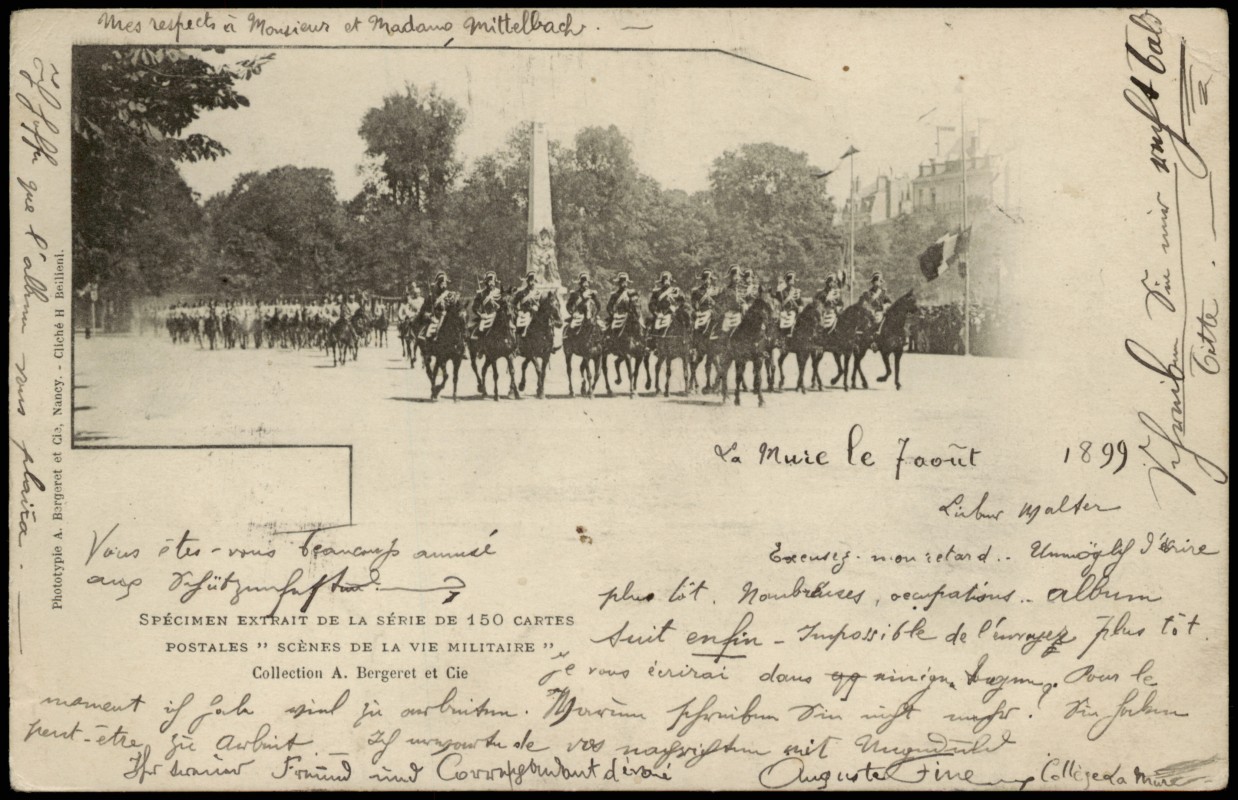 Mes respects à Monsieur et Madame Mittelbach. —
La Mure le 7 août 1899
Lieber Walter
Excusez-mon retard.. Unmöglich d'écrire
plus tôt. Nombreuses, occupations.. album
suit enfin - Impossible de l'envoyez plus tôt.
je vous écrirai dans einigen Tagen. Pour le
moment ich habe viel zu arbeiten. Warum schreiben Sie nicht mehr! Sie haben
peut-être zu arbeit. — Ich erwarte de vos nachrichten mit Ungeduld
Ihr treuer Freund und Correspondant dévoué
Auguste Fine Collège La Mure
Vous êtes-vous beaucoup amusé
aux Schützenfest
SPÉCIMEN EXTRAIT DE LA SÉRIE DE 150 CARTES
POSTALES " SCÈNES DE LA VIE MILITAIRE "
Collection A. Bergeret et Cie
Phototypie A. Bergeret et Cie, Nancy. - Cliché H Bellieni.
Ich hoffe que l'album vous plaira.
Schreiben Sie mir recht bald
bitte.